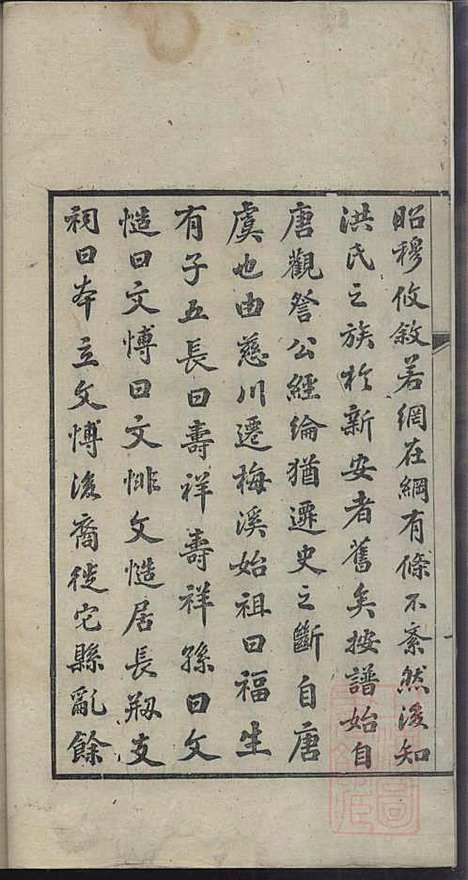 昭穆攸敘若網在綱有條不紊然後知
洪氏之族於新安者舊矣按譜始自
唐觀詧公經綸猶遷史之斷自唐
虞也由慈川遷梅溪始祖曰福生
有子五長曰壽祥壽祥孫曰文
慥曰文博曰文悱文慥居長剏支
祠曰本立文博後裔徙它縣亂餘